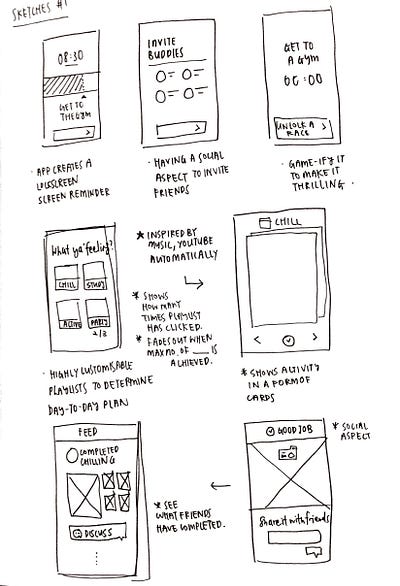 SKETCHES #1
08:30
GET TO
THE GYM
INVITE
BUDDIES
GET TO
A GYM
00:00
UNLOCK A
RACE
· APP CREATES A
LOCKSCREEN
SCREEN REMINDER
· HAVING A SOCIAL
ASPECT TO INVITE
FRIENDS
· GAME-IFY IT
TO MAKE IT
THRILLING.
What ya' feeling?
CHILL
STUDY
ACTIVE
PARTY
2/3
* INSPIRED BY
MUSIC, YOUTUBE
AUTOMATICALLY
* SHOWS
HOW MANY
TIMES PLAYLIST
HAS CLICKED.
* FADES OUT WHEN
MAX NO. OF ___ IS
ACHIEVED.
CHILL
· HIGHLY CUSTOMISABLE
PLAYLISTS TO DETERMINE
DAY-TO-DAY PLAN
* SHOWS ACTIVITY
IN A FORM OF
CARDS
FEED
COMPLETED
CHILLING
DISCUSS
* SEE
WHAT FRIENDS
HAVE COMPLETED.
GOOD JOB
Share it with friends
* SOCIAL
ASPECT